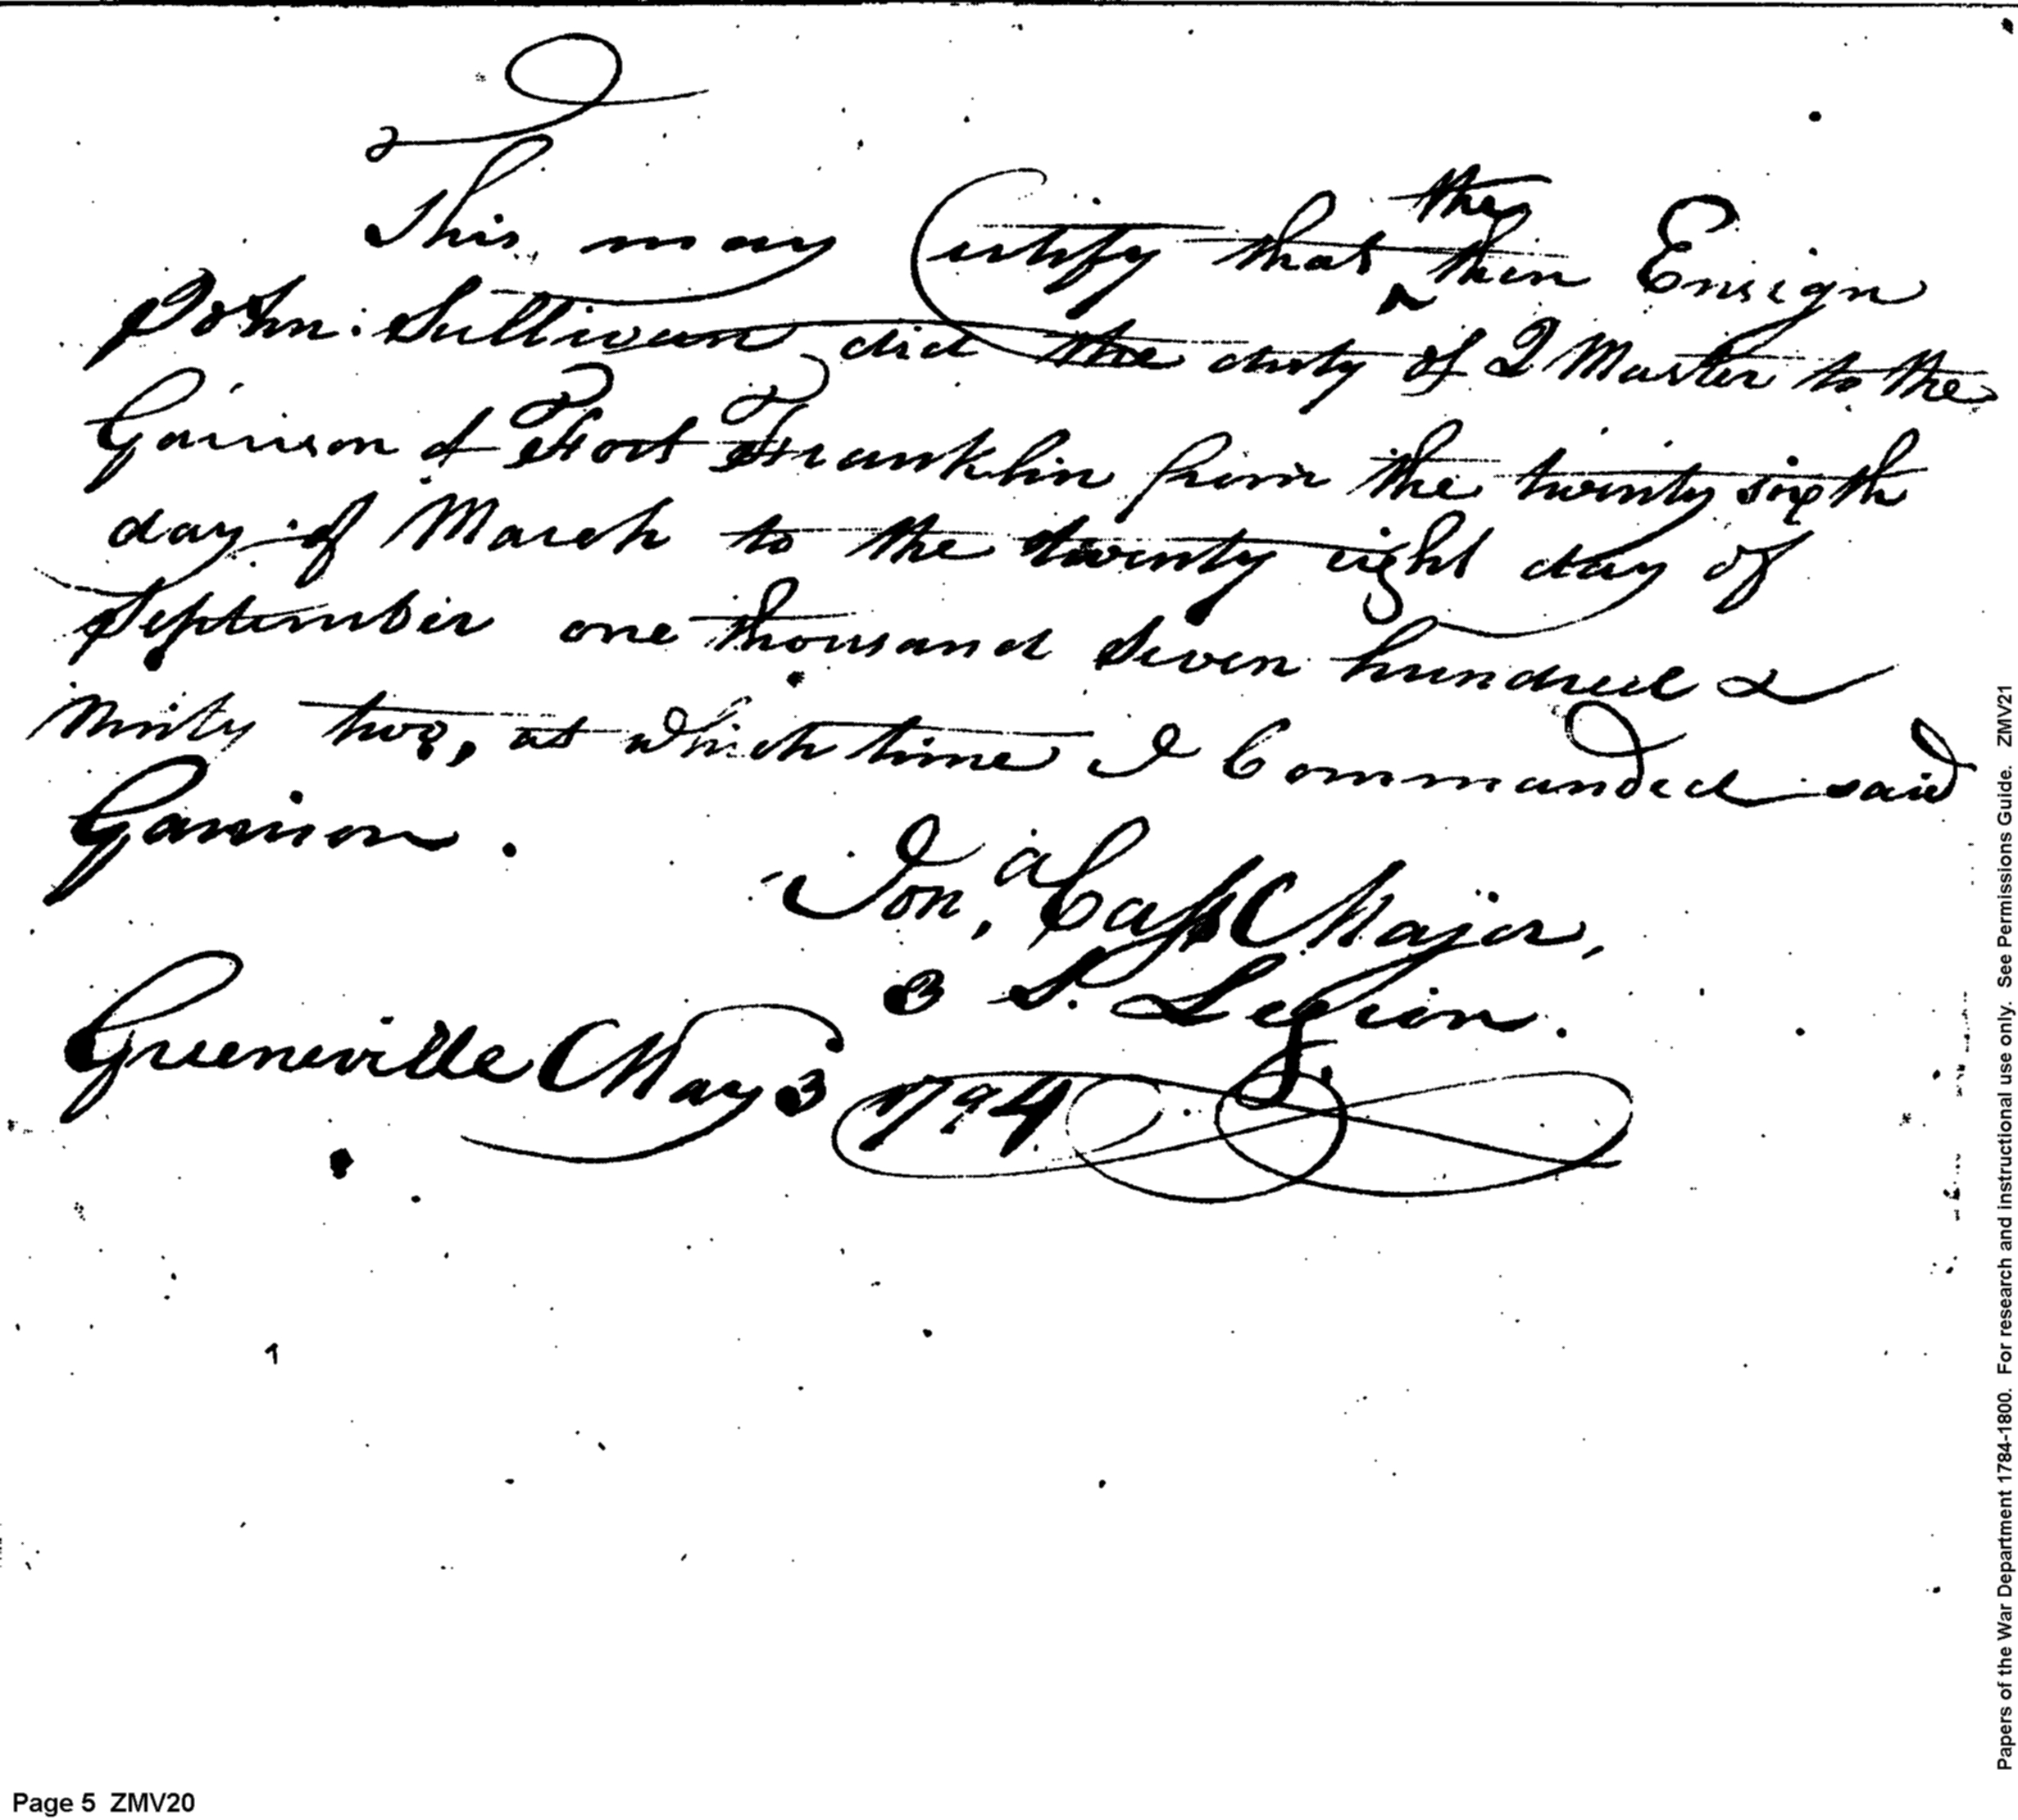 This may Certify that the then Ensign
John Sullivan did the duty of Q Master to the
Garrison of Fort Franklin from the twenty sixth
day of March to the twenty eight day of
September one thousand seven hundred &
ninty two, at which time I Commanded said
Garrison.
Jon,a Cass Major,
3 S. Legion.
Greeneville May 3 1794
Papers of the War Department 1784-1800. For research and instructional use only. See Permissions Guide. ZMV21
Page 5 ZMV20